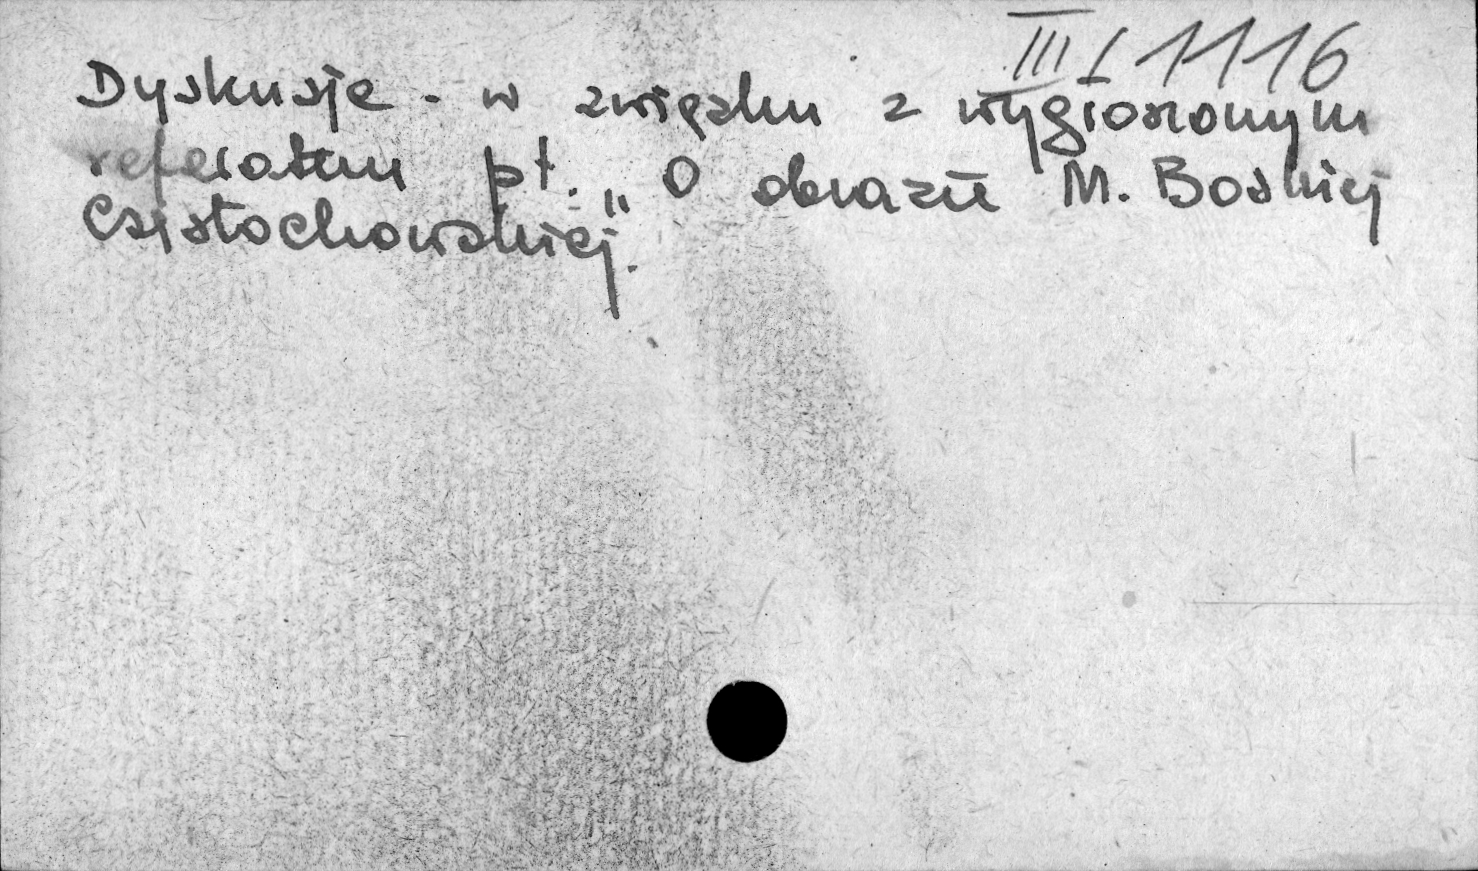 III I 1116
Dyskusje - w związku z wygłoszonym
referatem pt. O obrazie M. Boskiej
Częstochowskiej".